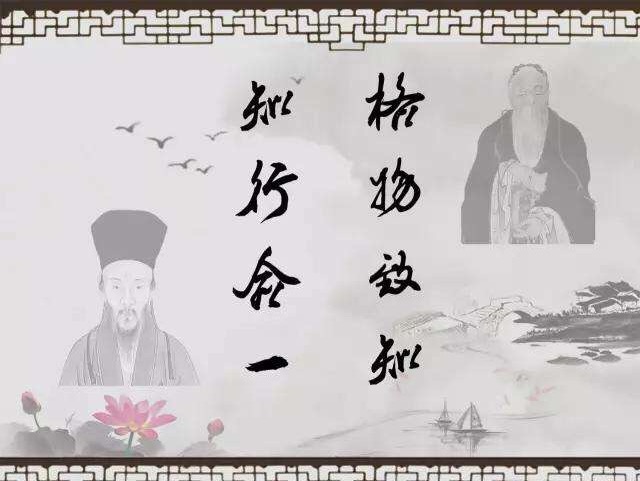 格物致知
知行合一